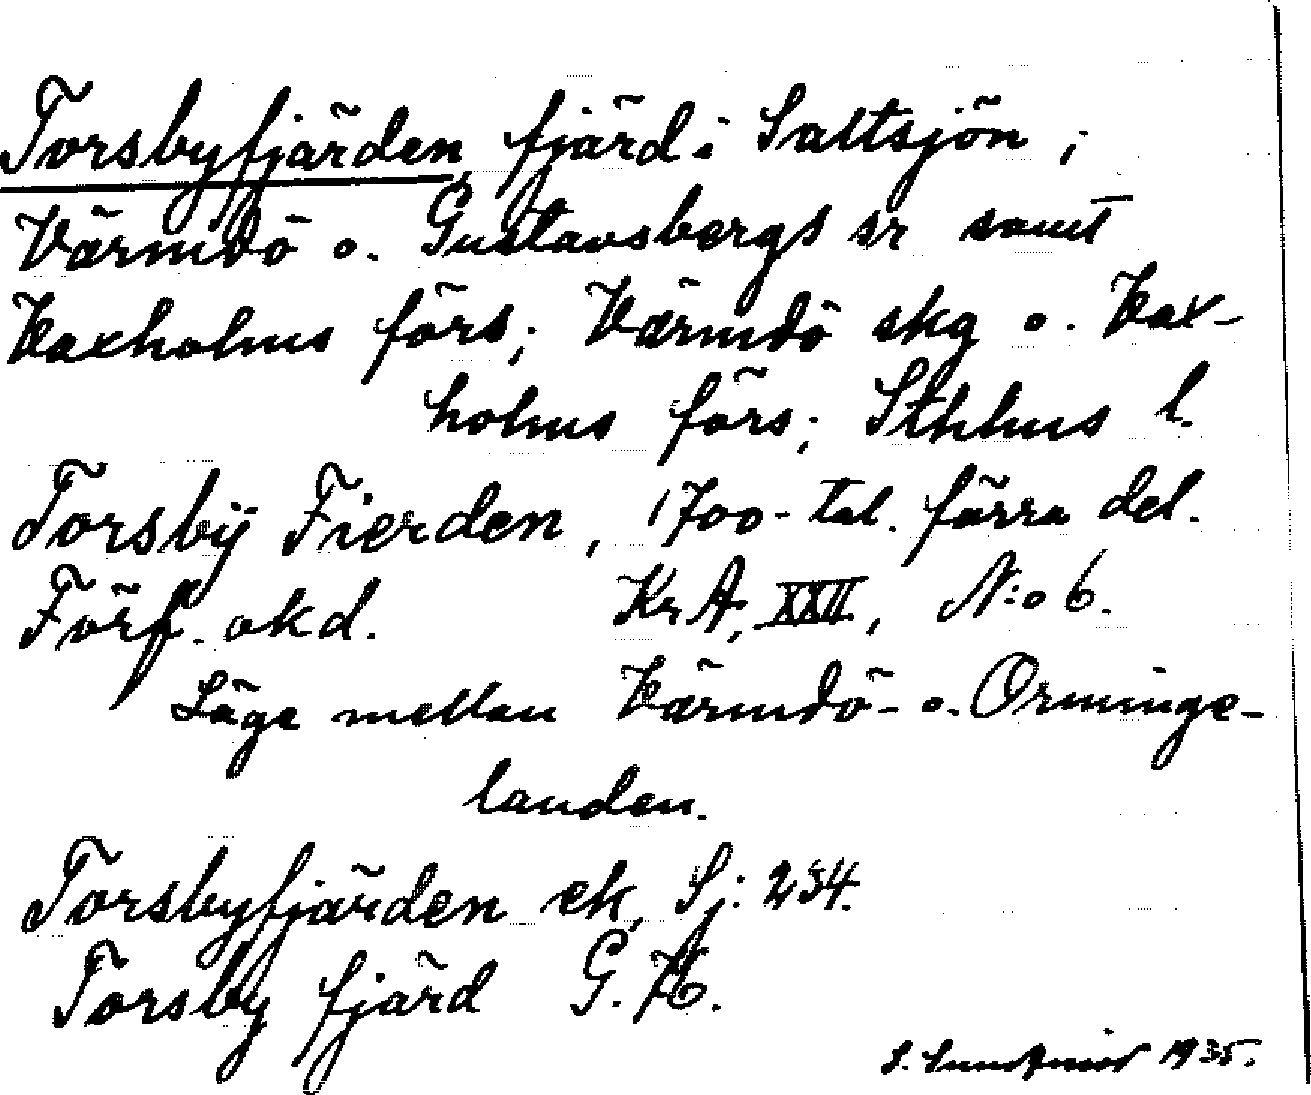 Torsbyfjärden, fjärd i Saltsjön;
Värmdö o. Gustavsbergs sr samt
Vaxholms förs; Värmdö skg o. Vax-
holms förs; Sthlms l.
Torsbÿ Fierden, 1700-tal. förra del.
Förf. okd. Kr A, XXII, N:o 6.
Läge mellan Värmdö- o. Orminge-
landen.
Torsbyfjärden ek, Sj: 234.
Torsby fjärd G. K.
S. 1935.